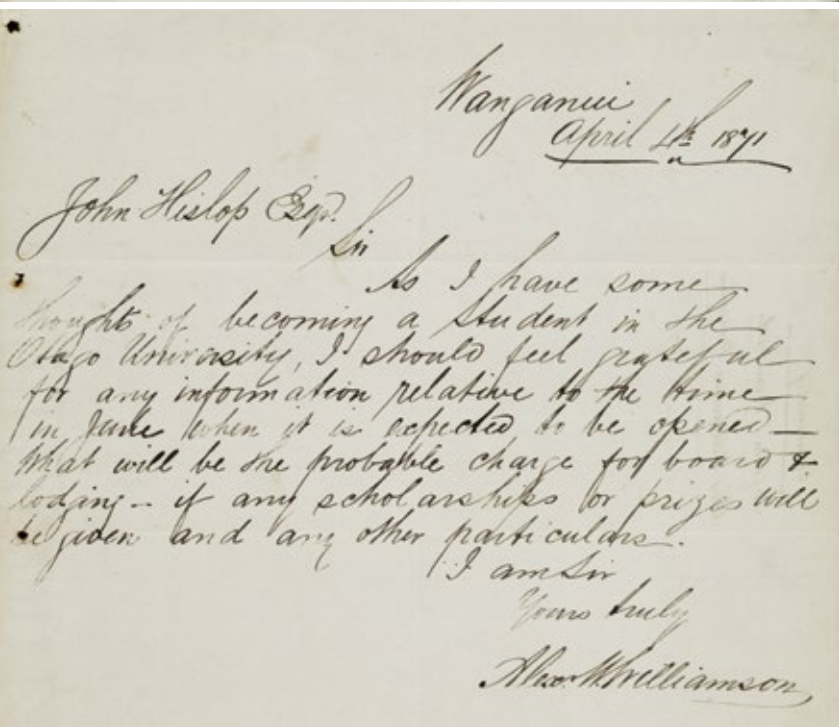 Wanganui
April 4th 1871
John Hislop Esqr.
Sir
As I have some
thoughts of becoming a Student in the
Otago University, I should feel grateful
for any information relative to the time
in June when it is expected to be opened —
what will be the probable charge for board &
lodging — if any scholarships or prizes will
be given and any other particulars.
I am Sir
Yours truly
Alexr. W. Williamson